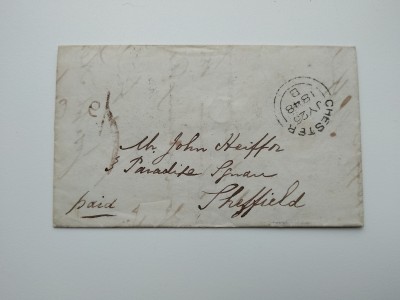 CHESTER
JY 25
1848
B
Mr John Heiffor
3 Paradise Square
Sheffield
paid